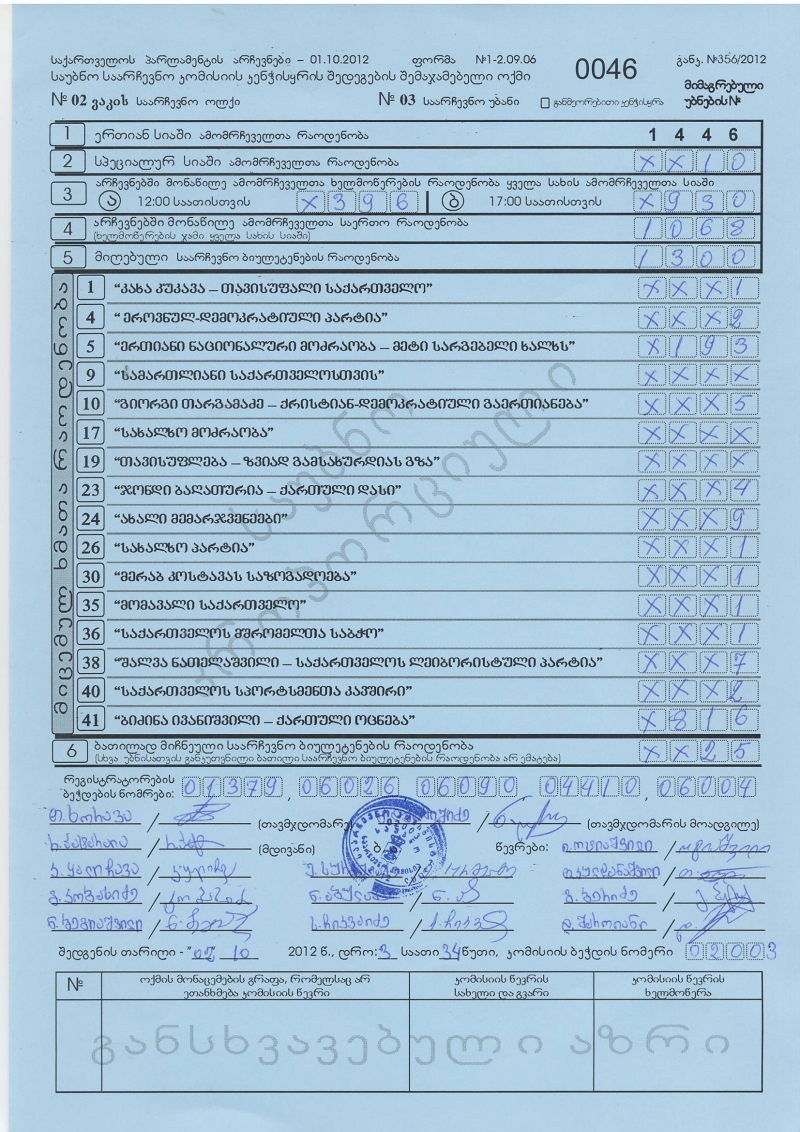 საქართველოს პარლამენტის არჩევნები – 01.10.2012 ფორმა №1-2.09.06 0046 განკ. №356/2012
საუბნო საარჩევნო კომისიის კენჭისყრის შედეგების შემაჯამებელი ოქმი
მიმაგრებული უბნების №
№ 02 ვაკის საარჩევნო ოლქი № 03 საარჩევნო უბანი განმეორებითი კენჭისყრა
1 ერთიან სიაში ამომრჩეველთა რაოდენობა 1 4 4 6
2 სპეციალურ სიაში ამომრჩეველთა რაოდენობა X X 1 0
3 არჩევნებში მონაწილე ამომრჩეველთა ხელმოწერების რაოდენობა ყველა სახის ამომრჩეველთა სიაში
ა 12:00 საათისთვის X 3 9 6 ბ 17:00 საათისთვის X 9 3 0
4 არჩევნებში მონაწილე ამომრჩეველთა საერთო რაოდენობა 1 0 6 8
(ხელმოწერების ჯამი ყველა სახის სიაში)
5 მიღებული საარჩევნო ბიულეტენების რაოდენობა 1 3 0 0
მიცემულ ხმათა რაოდენობა
1 “კახა კუკავა – თავისუფალი საქართველო” X X X 1
4 “ეროვნულ-დემოკრატიული პარტია” X X X 2
5 “ერთიანი ნაციონალური მოძრაობა – მეტი სარგებელი ხალხს” X 1 9 3
9 “სამართლიანი საქართველოსთვის” X X X X
10 “გიორგი თარგამაძე – ქრისტიან-დემოკრატიული გაერთიანება” X X X 5
17 “სახალხო მოძრაობა” X X X X
19 “თავისუფლება – ზვიად გამსახურდიას გზა” X X X X
23 “ჯონდი ბაღათურია – ქართული დასი” X X X 4
24 “ახალი მემარჯვენეები” X X X 9
26 “სახალხო პარტია” X X X 1
30 “მერაბ კოსტავას საზოგადოება” X X X 1
35 “მომავალი საქართველო” X X X 1
36 “საქართველოს მშრომელთა საბჭო” X X X 1
38 “შალვა ნათელაშვილი – საქართველოს ლეიბორისტული პარტია” X X X 7
40 “საქართველოს სპორტსმენთა კავშირი” X X X 2
41 “ბიძინა ივანიშვილი – ქართული ოცნება” X 8 1 6
საუბნო
პროპორციული
6 ბათილად მიჩნეული საარჩევნო ბიულეტენების რაოდენობა X X 2 5
(სხვა უბნისათვის განკუთვნილი ბათილი საარჩევნო ბიულეტენების რაოდენობა არ ემატება)
რეგისტრატორების ბეჭდების ნომრები: 01379, 06026 06090 04410 06004
თ. ხორავა / (თავმჯდომარე) / (თავმჯდომარის მოადგილე)
/ (მდივანი) წევრები:
შედგენის თარიღი - "02" 10 2012 წ., დრო: 3 საათი 34 წუთი, კომისიის ბეჭდის ნომერი 02003
№ ოქმის მონაცემების გრაფა, რომელსაც არ ეთანხმება კომისიის წევრი კომისიის წევრის სახელი და გვარი კომისიის წევრის ხელმოწერა
განსხვავებული აზრი